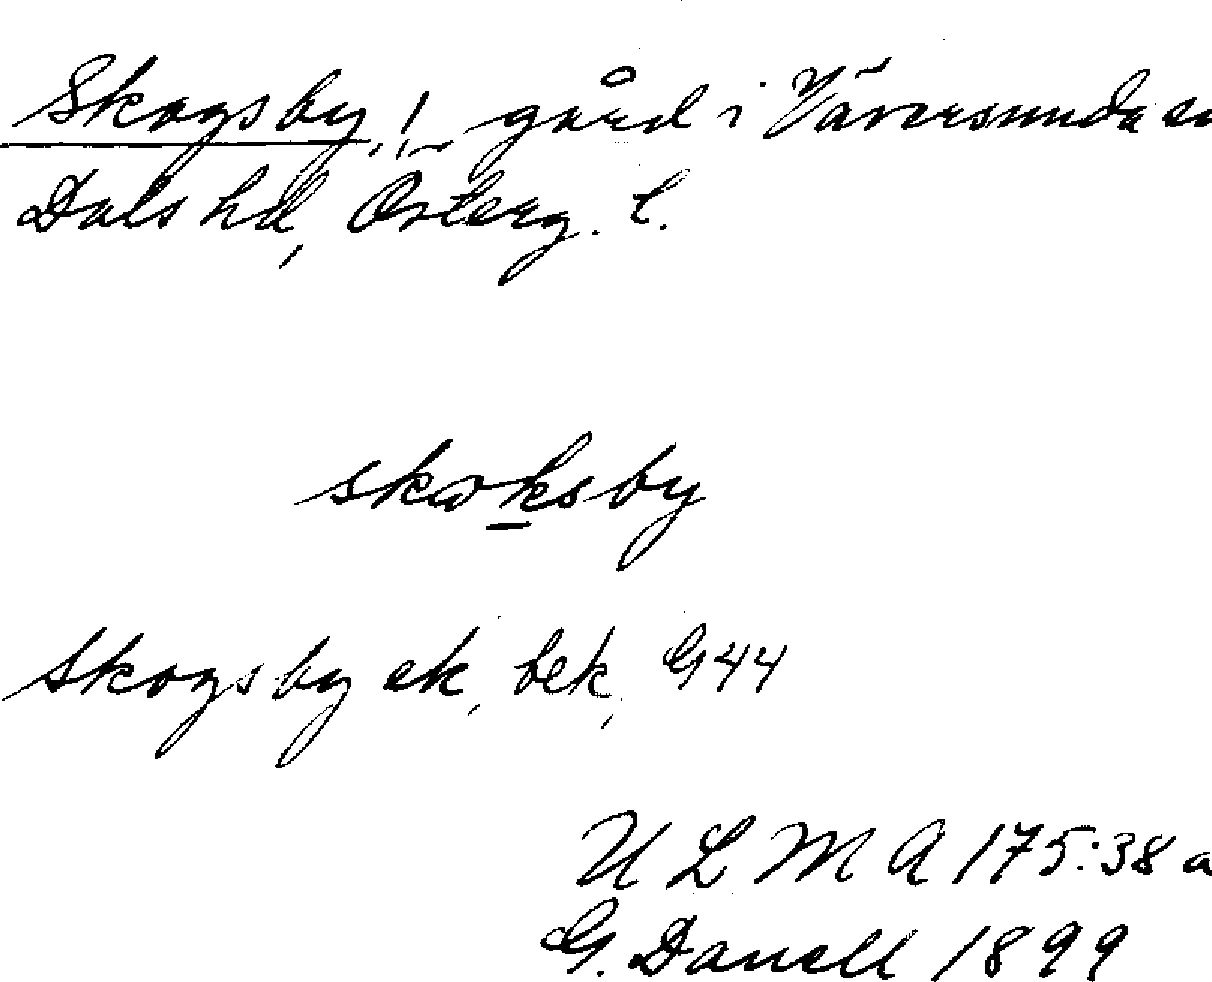 Skogsby, ! gård i Väversunda sn
Dals hd, Österg. l.
skωksby
Skogsby ek, bek, G44
U L M A 175:38 a
G. Danell 1899